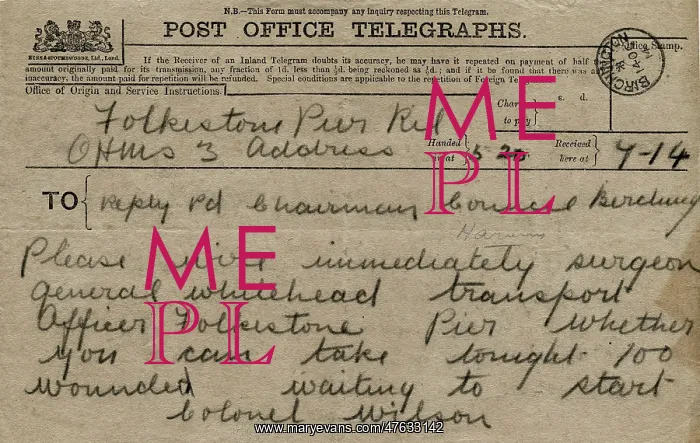 N.B.—This Form must accompany any Inquiry respecting this Telegram.
POST OFFICE TELEGRAPHS.
If the Receiver of an Inland Telegram doubts its accuracy, he may have it repeated on payment of half
amount originally paid for its transmission, any fraction of 1d. less than ½d. being reckoned as ½d.; and if it be found that there was
inaccuracy, the amount paid for repetition will be refunded. Special conditions are applicable to the repetition of Foreign
Office of Origin and Service Instructions.
Office Stamp.
s. d.
to pay
Folkestone Pier
OHMS 3 Address
Handed in at 5.25 Received here at 7-14
TO Reply Pd Chairman
Please immediately surgeon
general whitehead transport
Officer Folkestone Pier whether
you can take tonight 100
wounded waiting to start
Colonel Wilson
ME PL
ME PL
www.maryevans.com/47633142